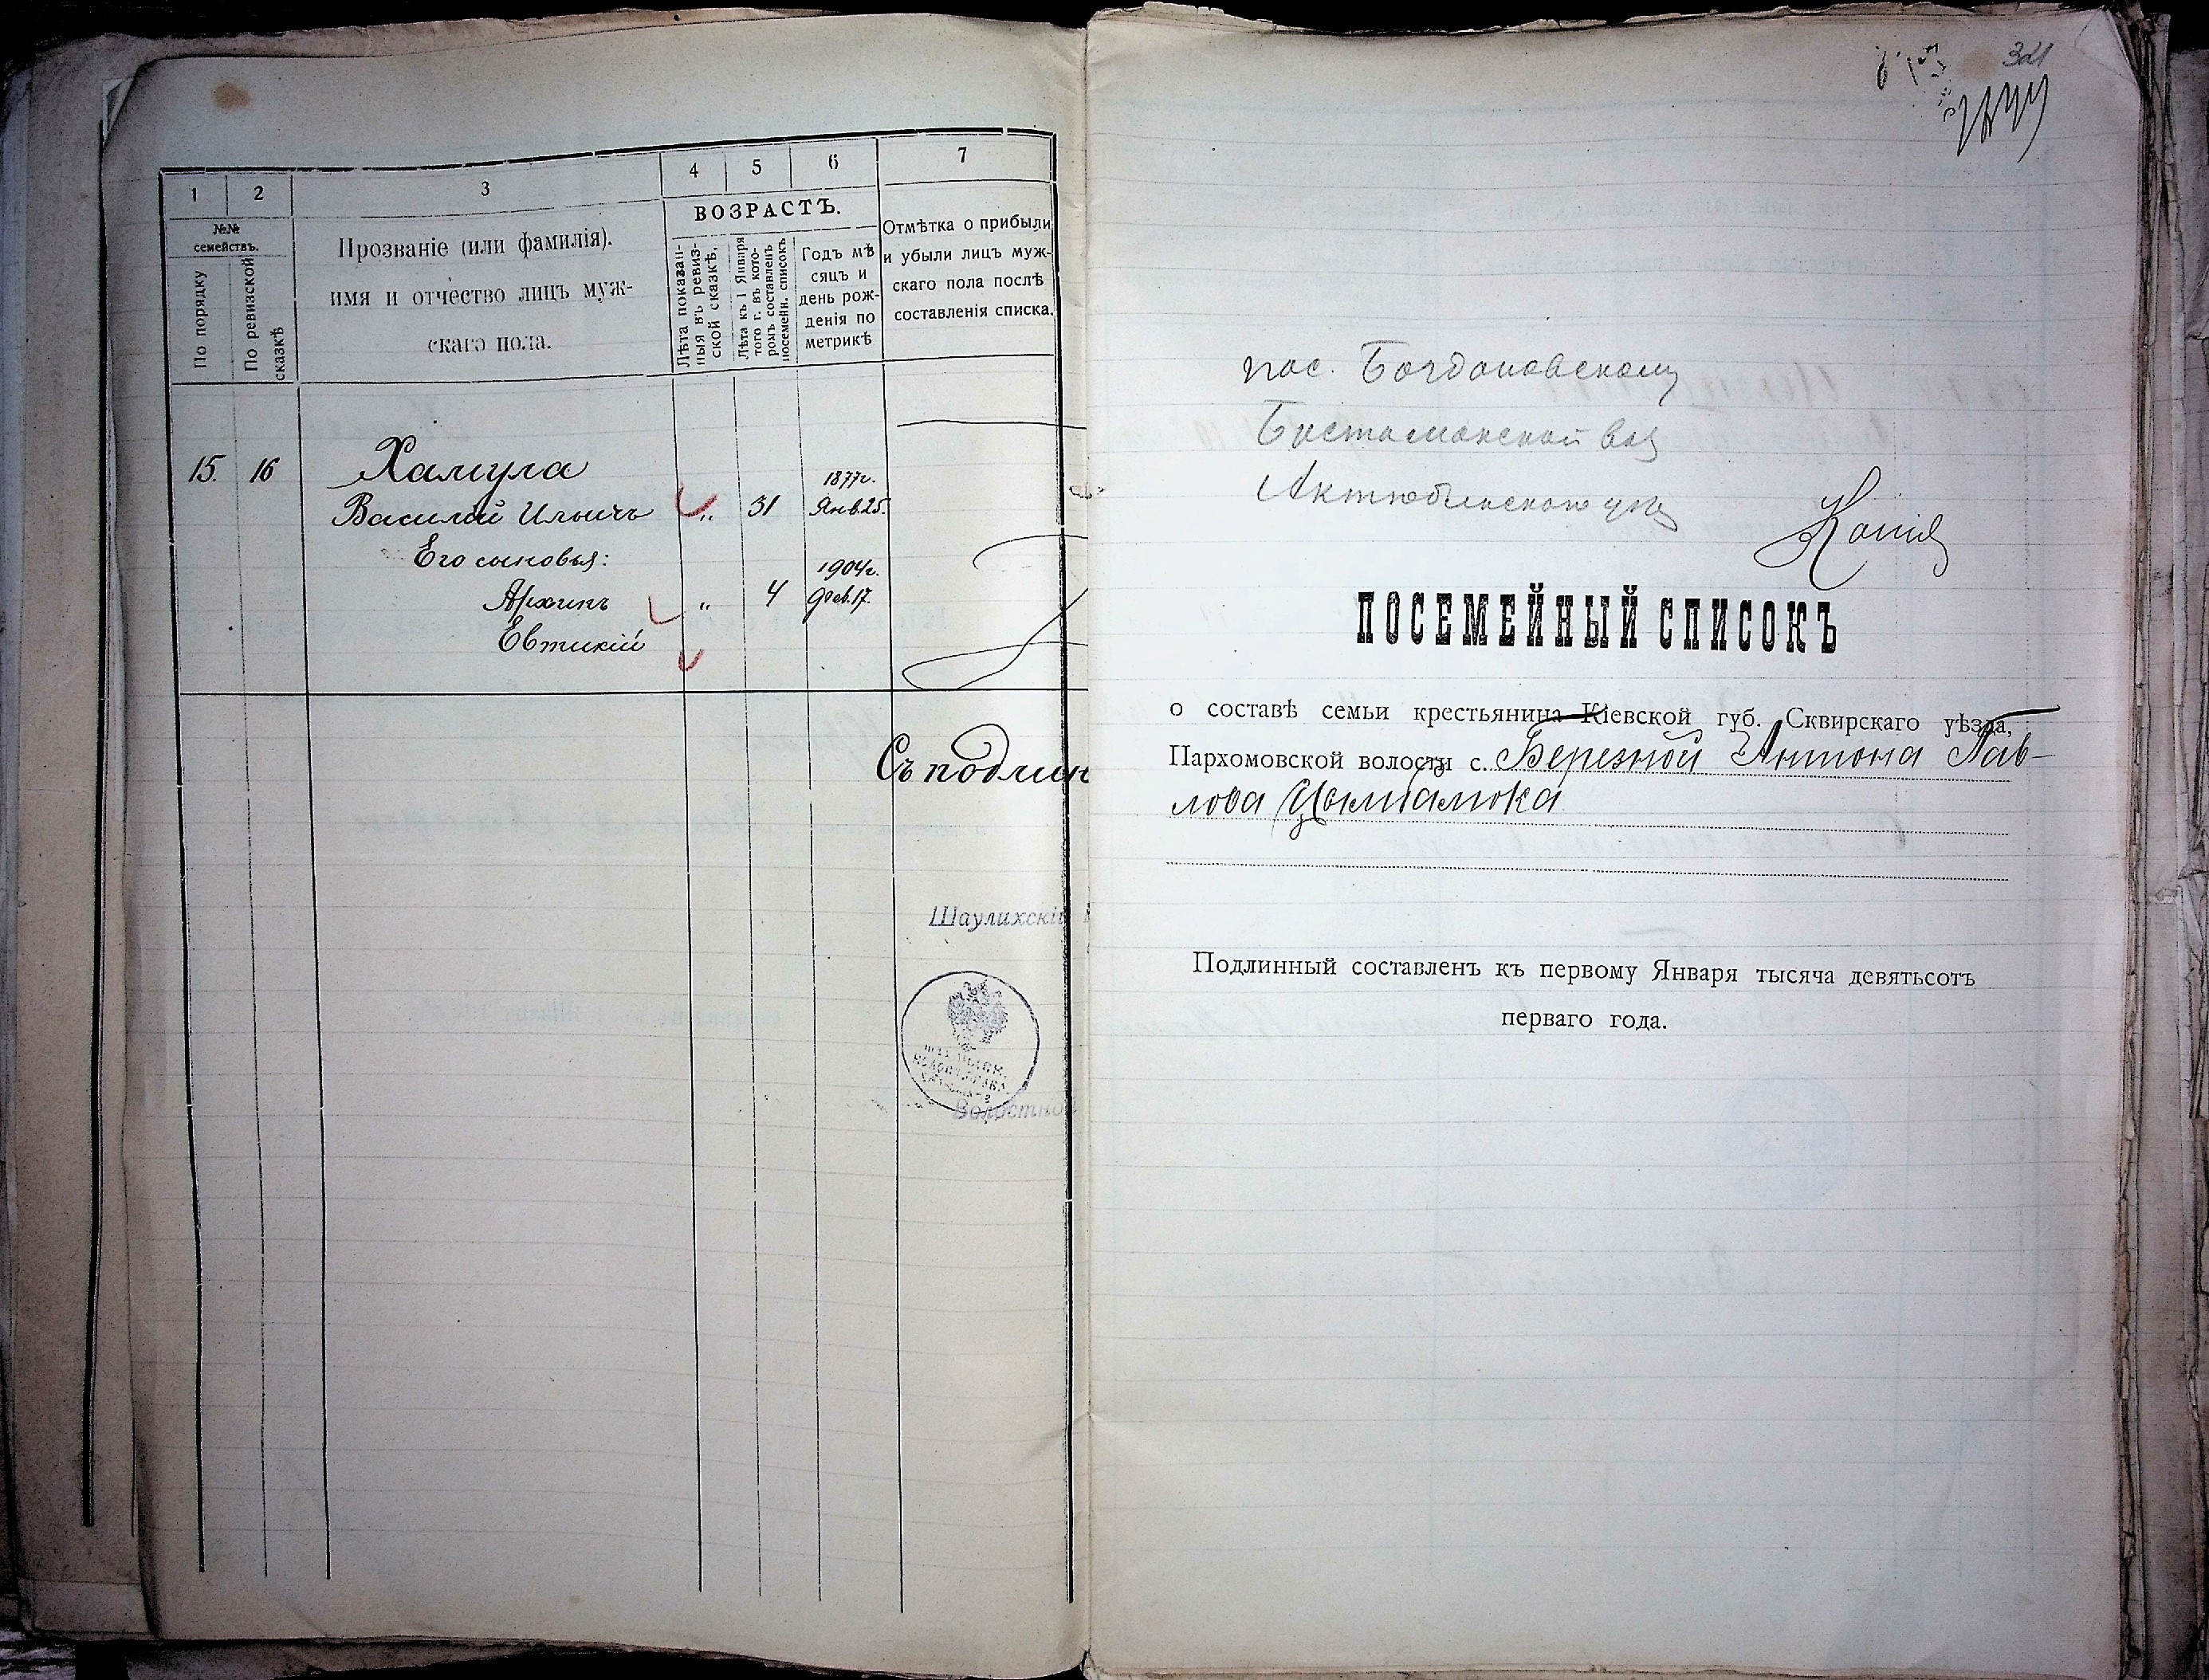 1 2 3 4 5 6 7
№№ семействъ.
По порядку
По ревизской сказкѣ
Прозваніе (или фамилія).
имя и отчество лицъ муж-
скаго пола.
ВОЗРАСТЪ.
Лѣта показан-
ныя въ ревиз-
ской сказкѣ,
Лѣта къ 1 Января
того г. въ кото-
ромъ составленъ
посемейн. списокъ
Годъ мѣ
сяцъ и
день рож-
денія по
метрикѣ
Отмѣтка о прибыли
и убыли лицъ муж-
скаго пола послѣ
составленія списка.
15. 16 Хамула 1877г.
Василій Ильичъ „ 31 Янв.25.
Его сыновья: 1904г.
Архипъ „ 4 Фев.17.
Евтихій
Съ подлин
Шаулихскій
Волостной
321
пос. Богдановскому
Бистамакской вол
Актюбинскаго у
Копія
ПОСЕМЕЙНЫЙ СПИСОКЪ
о составѣ семьи крестьянина Кіевской губ. Сквирскаго уѣзда,
Пархомовской волости с. Березной Антона Пав-
лова Цымбалюка
Подлинный составленъ къ первому Января тысяча девятьсотъ
перваго года.